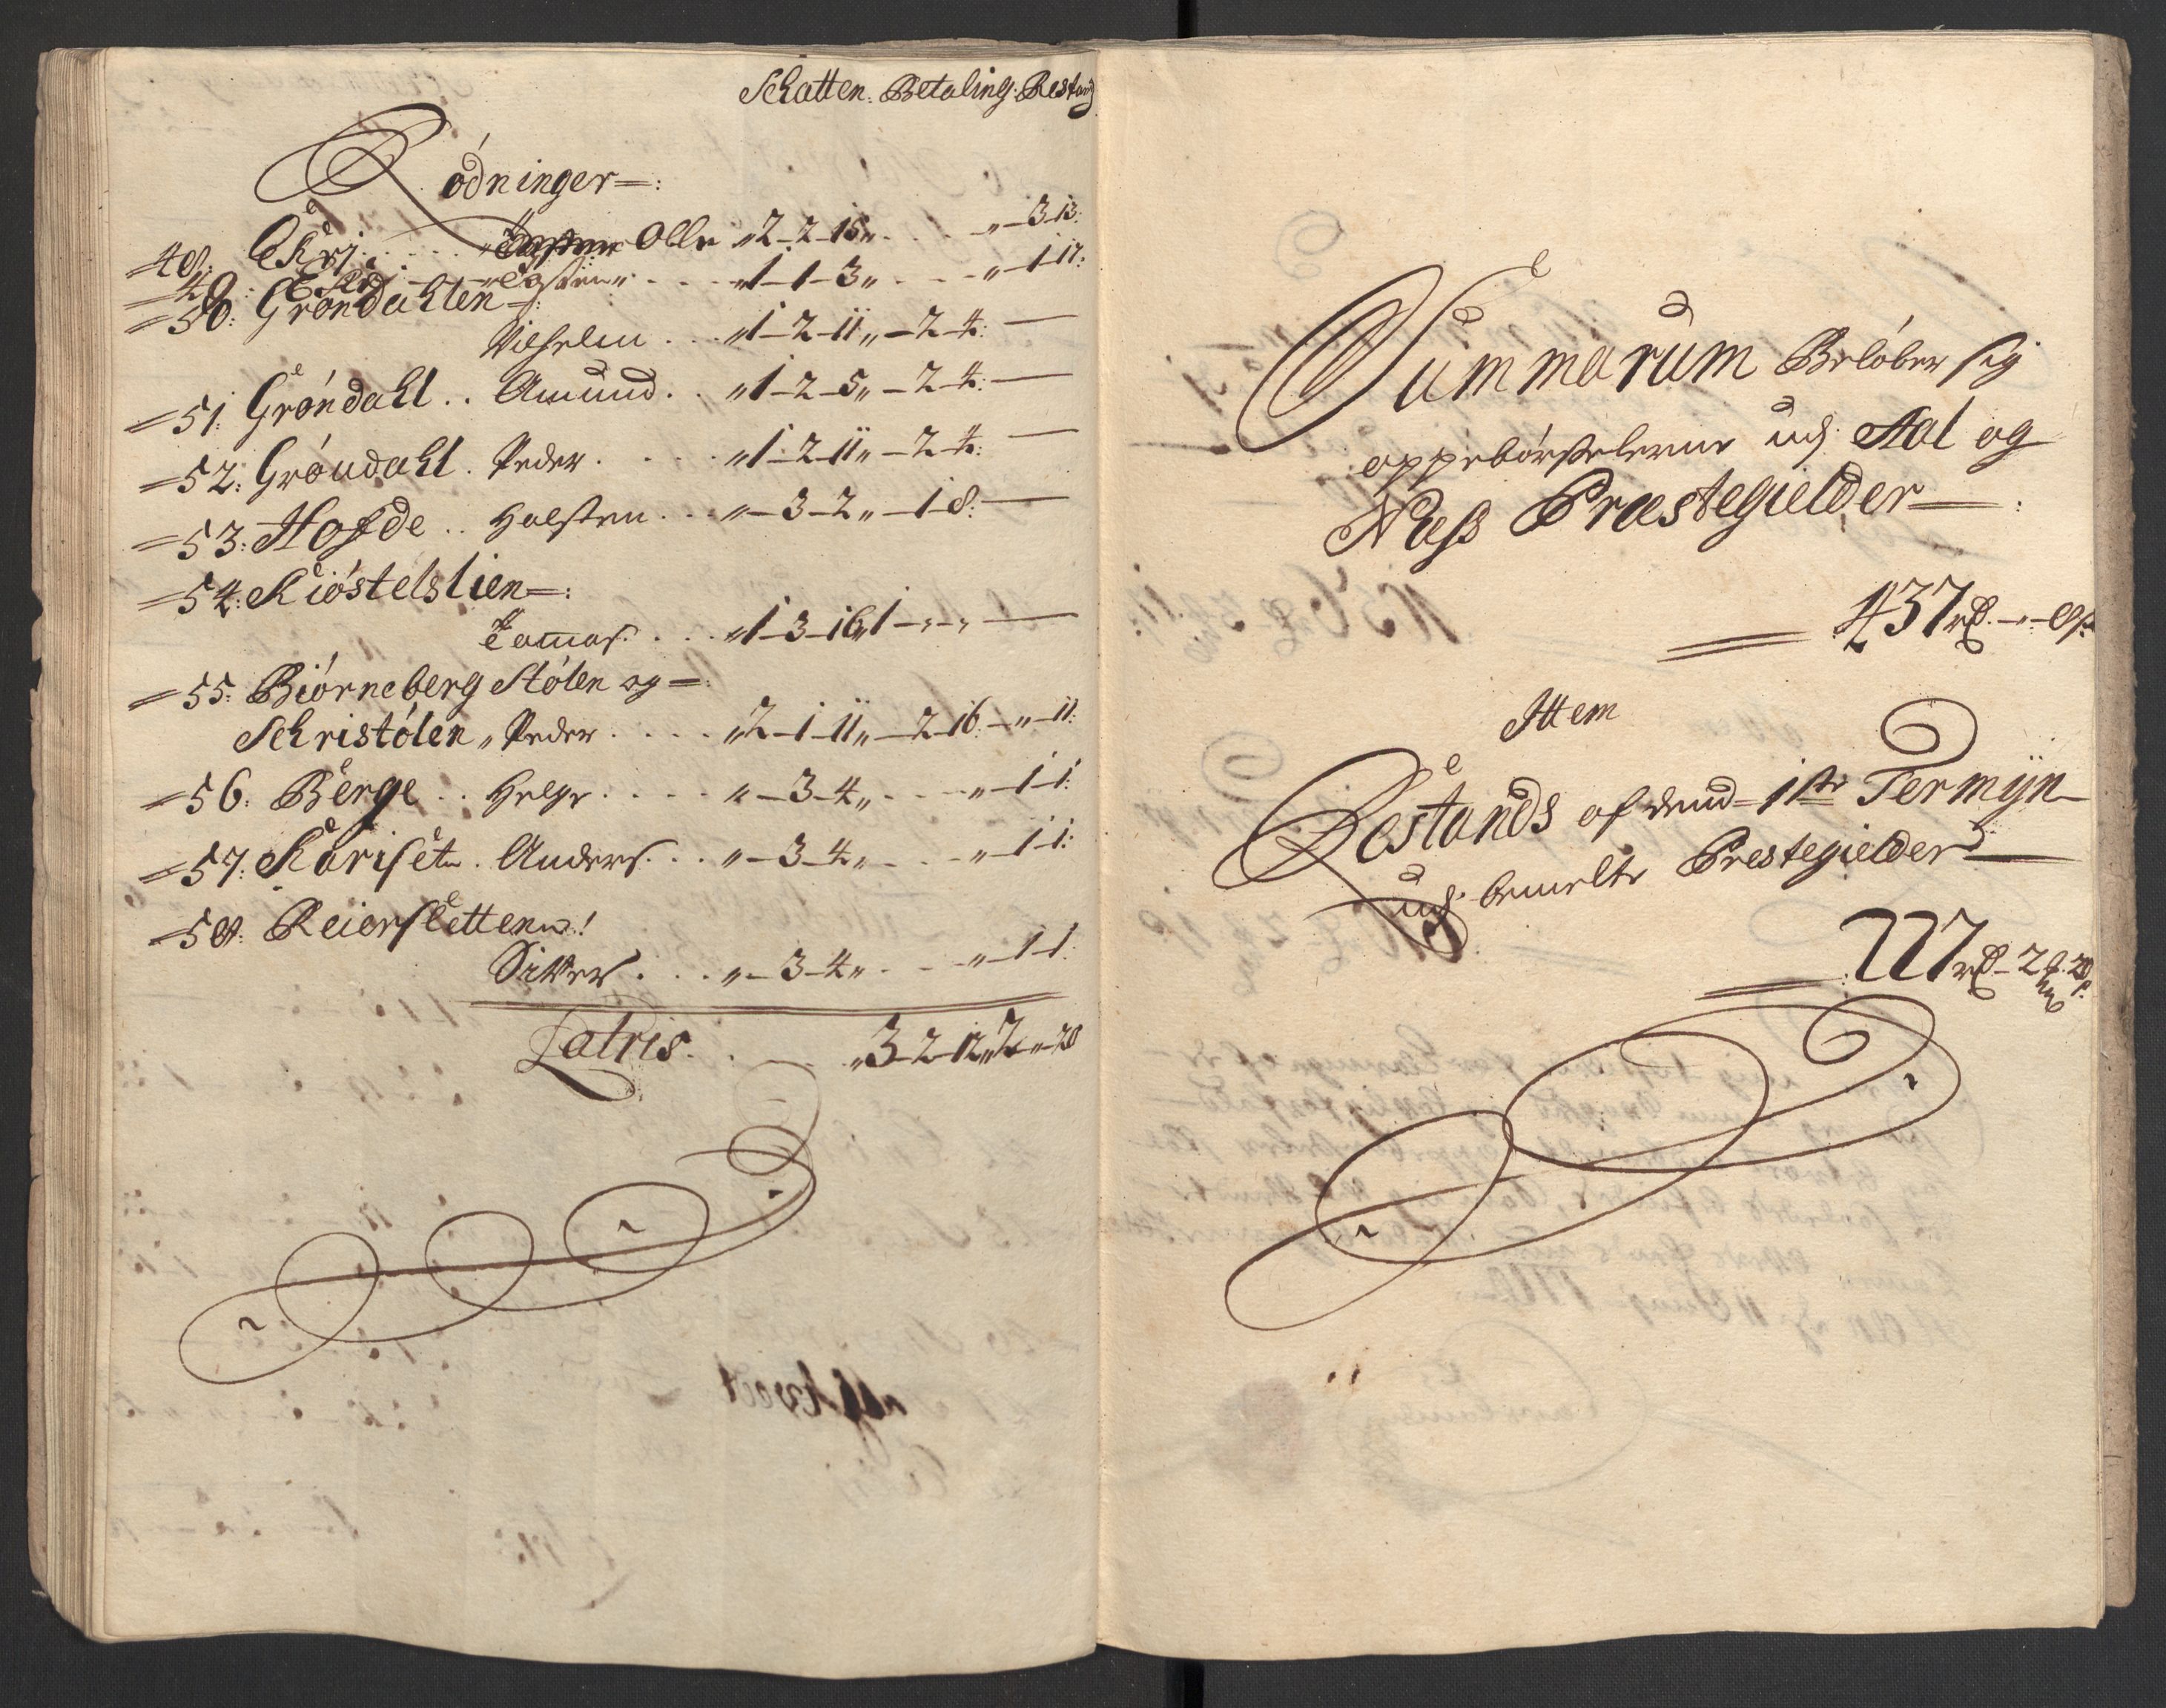 Schatten. Betaling. Restand
Rødninger=:
48: Ekrj: . . . . Olle „2-2-15„ . . . „-3-13:
=49: Ekrj Eysten „ . . . „1-1-3„ . . . „-1-17:
=50: Grøndahlen=:
Vilhelm . . . „1-2-11„-2-4:—
=51: Grøndahl . . Amund . . „1-2-5„-2-4:—
=52: Grøndahl . Peder . . . . „1-2-11„-2-4:—
=53: Hofde . . Halsten . . . „-3-2„-1-8:—
=54: Kiøstelslien=:
Tomas . . . „1-3-16„1-„-„—
=55: Biørneberg Stølen og=:
Schristølen „ Peder . . . . „2-1-11„-2-16-„-11:
=56: Berge . . Helge . . . . „-3-4„ . . . „-1-1:
=57: Kariset . Anders . . . „-3-4„ . . . „-1-1:
=58: Reierslettene!
Siver . . . „-3-4„ . . . „-1-1:
Latris . . — „3-2-12„2„-20
Summarum Beløber sig
oppebørselerne udj Aal og
Næss Præstegielder—:
437 rd. -„- 8 s
Ittem
Restands af dend 1ste Termijn
udj bemelte Prestegielder—
227 rd- 2